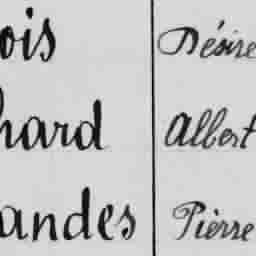 ois Désiré
hard Albert
andes Pierre